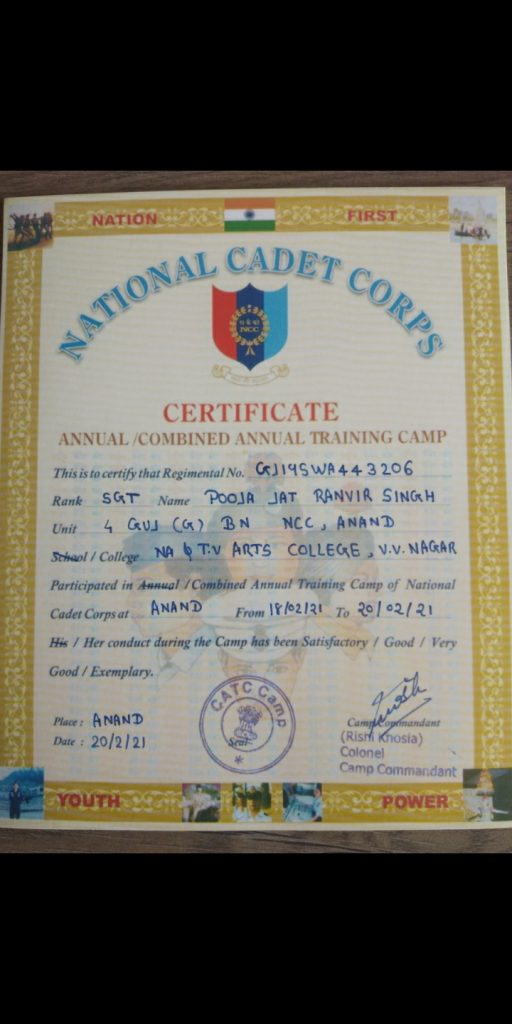 NATION FIRST
NATIONAL CADET CORPS
NCC
CERTIFICATE
ANNUAL /COMBINED ANNUAL TRAINING CAMP
This is to certify that Regimental No. GJ19SWA443206
Rank SGT Name POOJA JAT RANVIR SINGH
Unit 4 GUJ (G) BN NCC, ANAND
School / College NA & T.V ARTS COLLEGE, V.V. NAGAR
Participated in Annual / Combined Annual Training Camp of National
Cadet Corps at ANAND From 18/02/21 To 20/02/21
His / Her conduct during the Camp has been Satisfactory / Good / Very
Good / Exemplary.
CATC Camp
Seal
Place : ANAND
Date : 20/2/21
Camp Commandant
(Rishi Khosla)
Colonel
Camp Commandant
YOUTH POWER